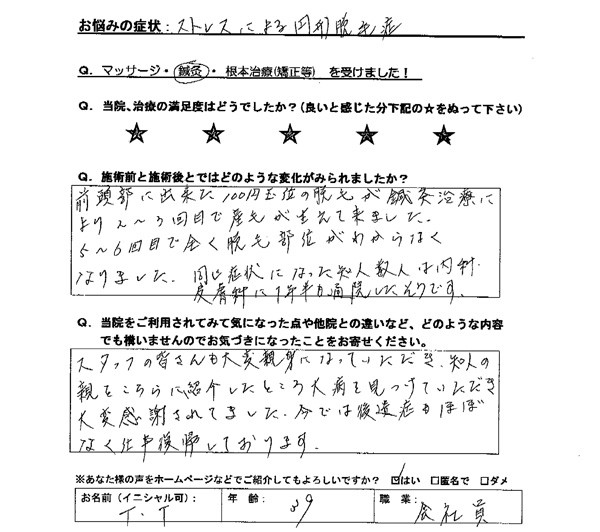 お悩みの症状：ストレスによる円形脱毛症
Q．マッサージ・鍼灸・根本治療(矯正等) を受けました！
Q．当院、治療の満足度はどうでしたか？(良いと感じた分下記の☆をぬって下さい)
★ ★ ★ ★ ★
Q．施術前と施術後とではどのような変化がみられましたか？
前頭部に出来た100円玉位の脱毛が鍼灸治療に
より2〜3回目で産毛が生えて来ました。
5〜6回目で全く脱毛部位がわからなく
なりました。同じ症状になった知人数人は内科・
皮膚科に1年半も通院したそうです。
Q．当院をご利用されてみて気になった点や他院との違いなど、どのような内容
でも構いませんのでお気づきになったことをお寄せください。
スタッフの皆さんも大変親身になっていただき、知人の
親をこちらに紹介したところ大病を見つけていただき
大変感謝されてました。今では後遺症もほぼ
なく仕事復帰しております。
※あなた様の声をホームページなどでご紹介してもよろしいですか？ ☑はい □匿名で □ダメ
お名前(イニシャル可)： T．T 年齢： 39 職業： 会社員